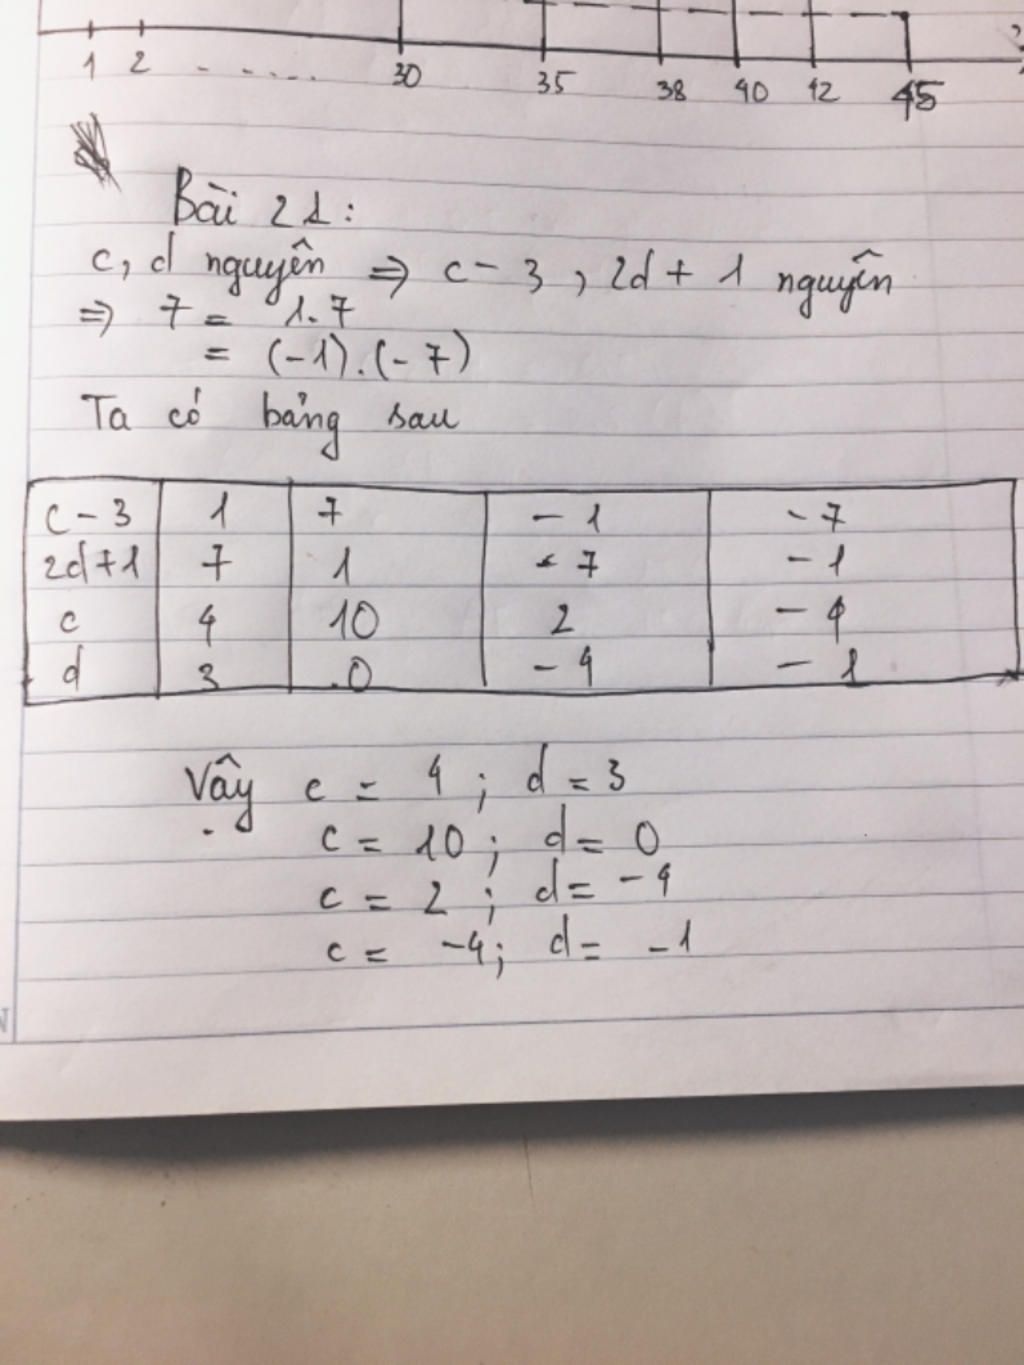 1 2 ...... 30 35 38 40 42 45
Bài 21:
c, d nguyên ⇒ c - 3 , 2d + 1 nguyên
⇒ 7 = 1.7
= (-1).(-7)
Ta có bảng sau
c - 3 1 7 - 1 - 7
2d+1 7 1 - 7 - 1
c 4 10 2 - 4
d 3 0 - 4 - 1
Vậy c = 4 ; d = 3
c = 10 ; d = 0
c = 2 ; d = -4
c = -4; d = -1